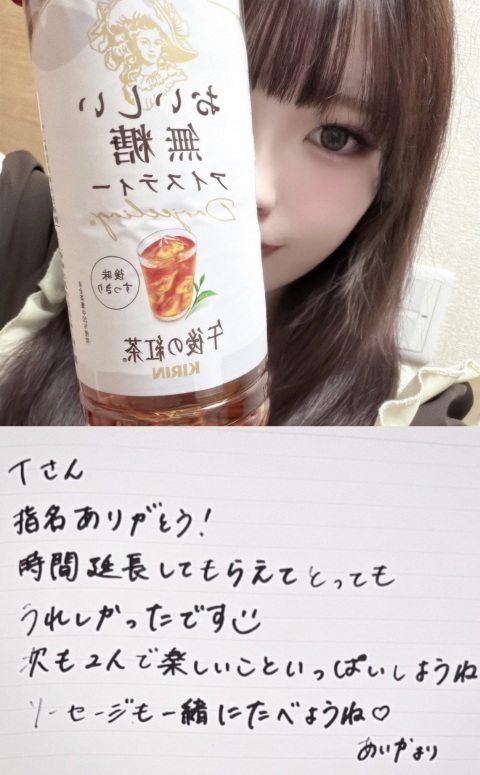 おいしい
無糖
アイスティー
Darjeeling
後味
すっきり
午後の紅茶
KIRIN
Tさん
指名ありがとう!
時間延長してもらえてとっても
うれしかったです
次も2人で楽しいこといっぱいしようね
ソーセージも一緒にたべようね♡
あいかより